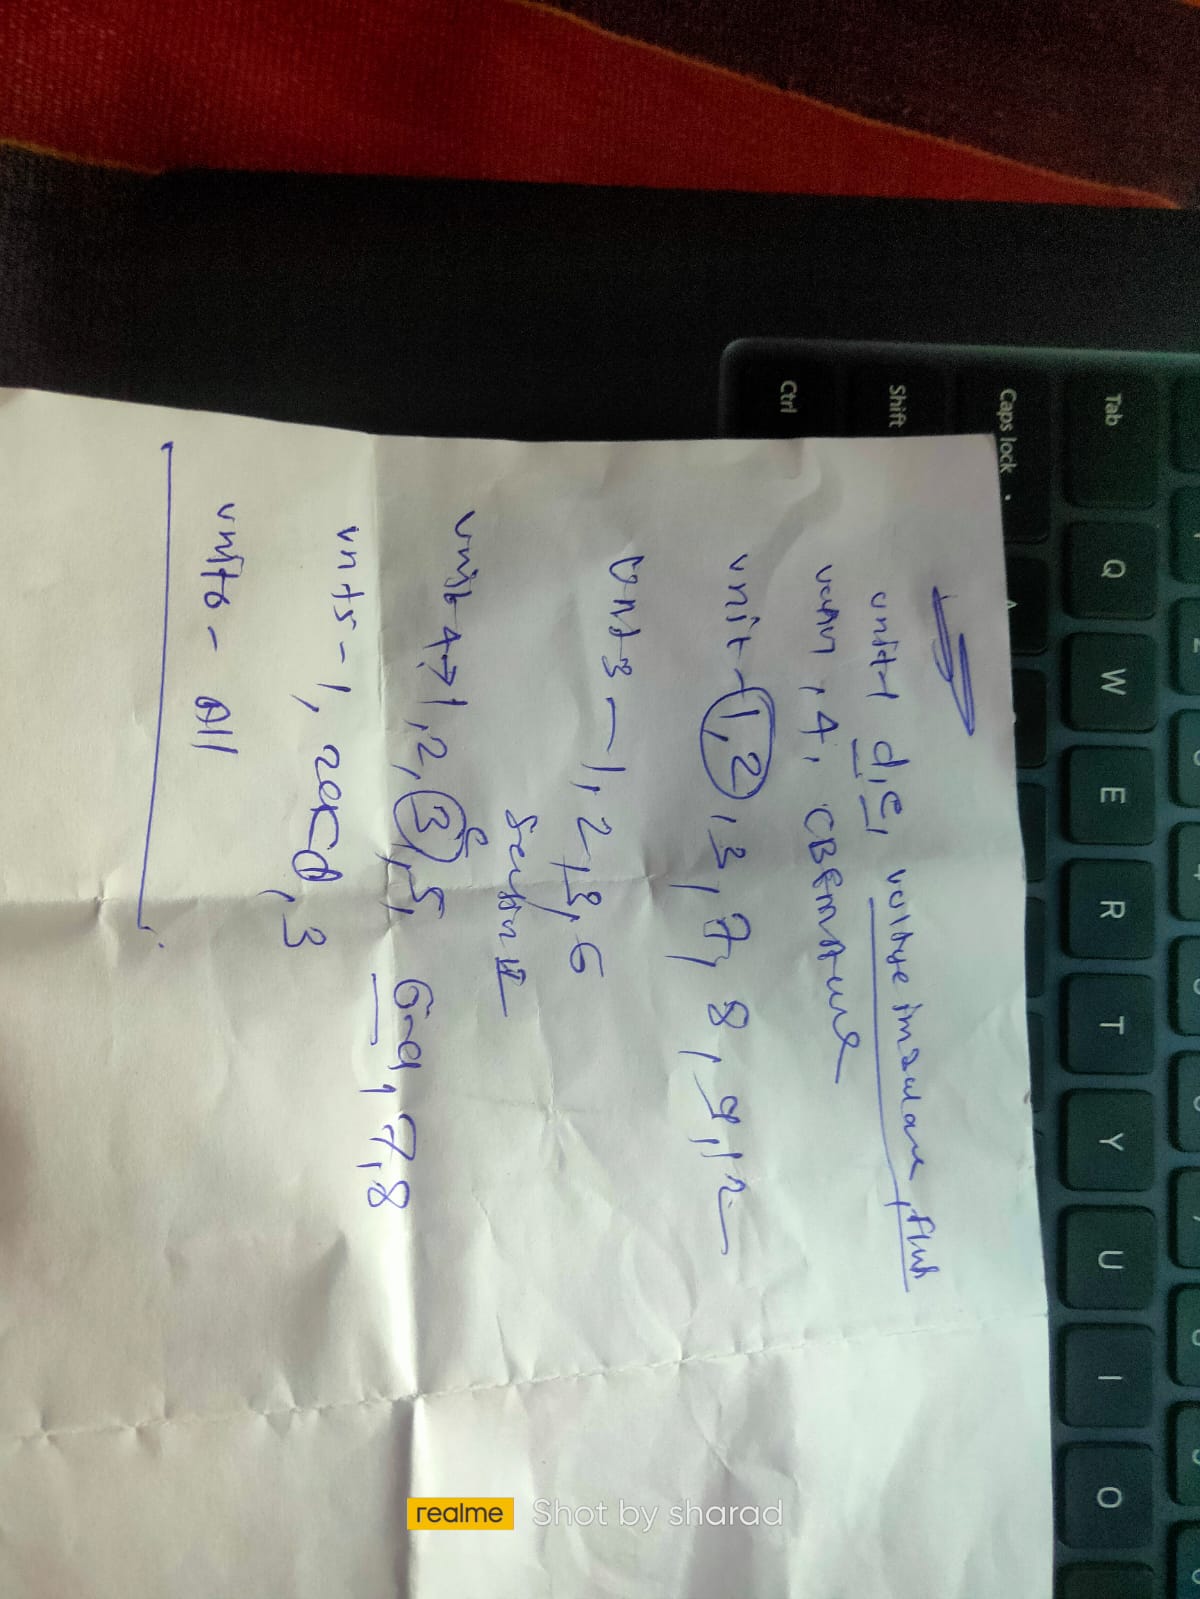 Tab Q W E R T Y U I O
Caps lock
Shift
Ctrl
unit-1 d, e, voltge imbalance, flux
, 4,
unit-1,2, 3, 7, 8, 9, 12
unit3 - 1, 2, 3, 6
Section II
c
unit 4 → 1, 2, 3, 5, 6-a, 7, 8
unit5 - 1, 3
unit6 - All
Shot by sharad
realme